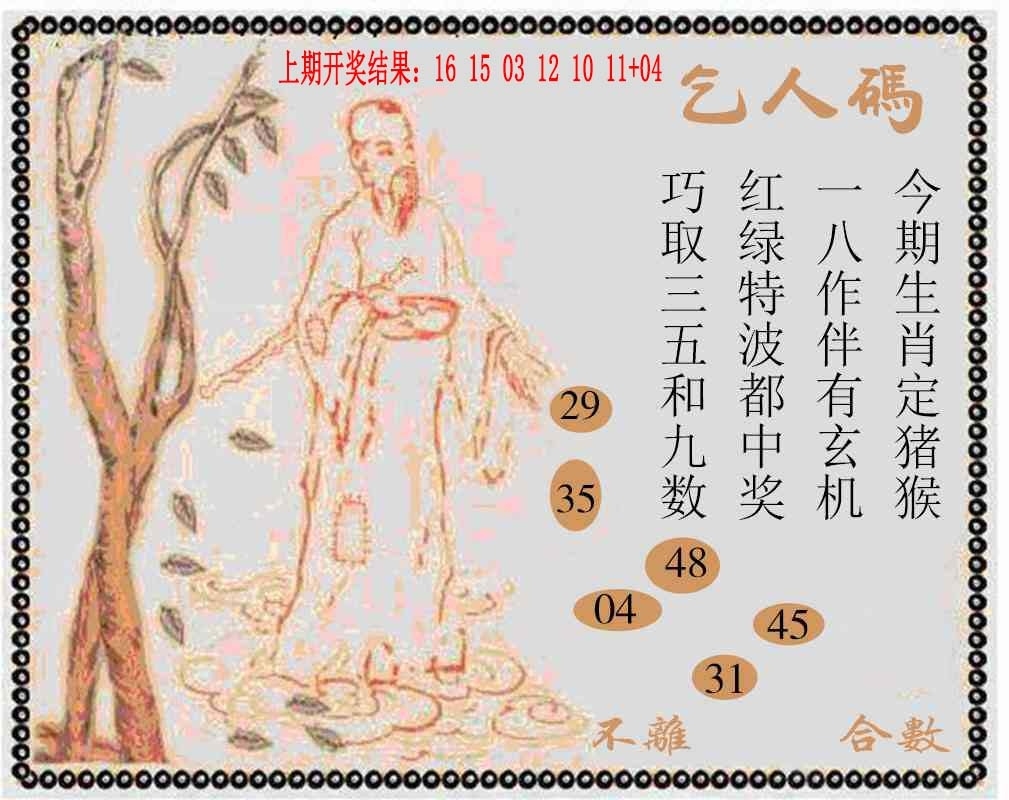 上期开奖结果：16 15 03 12 10 11+04
乞人碼
今期生肖定猪猴
一八作伴有玄机
红绿特波都中奖
巧取三五和九数
29
35
48
04
45
31
不離
合數